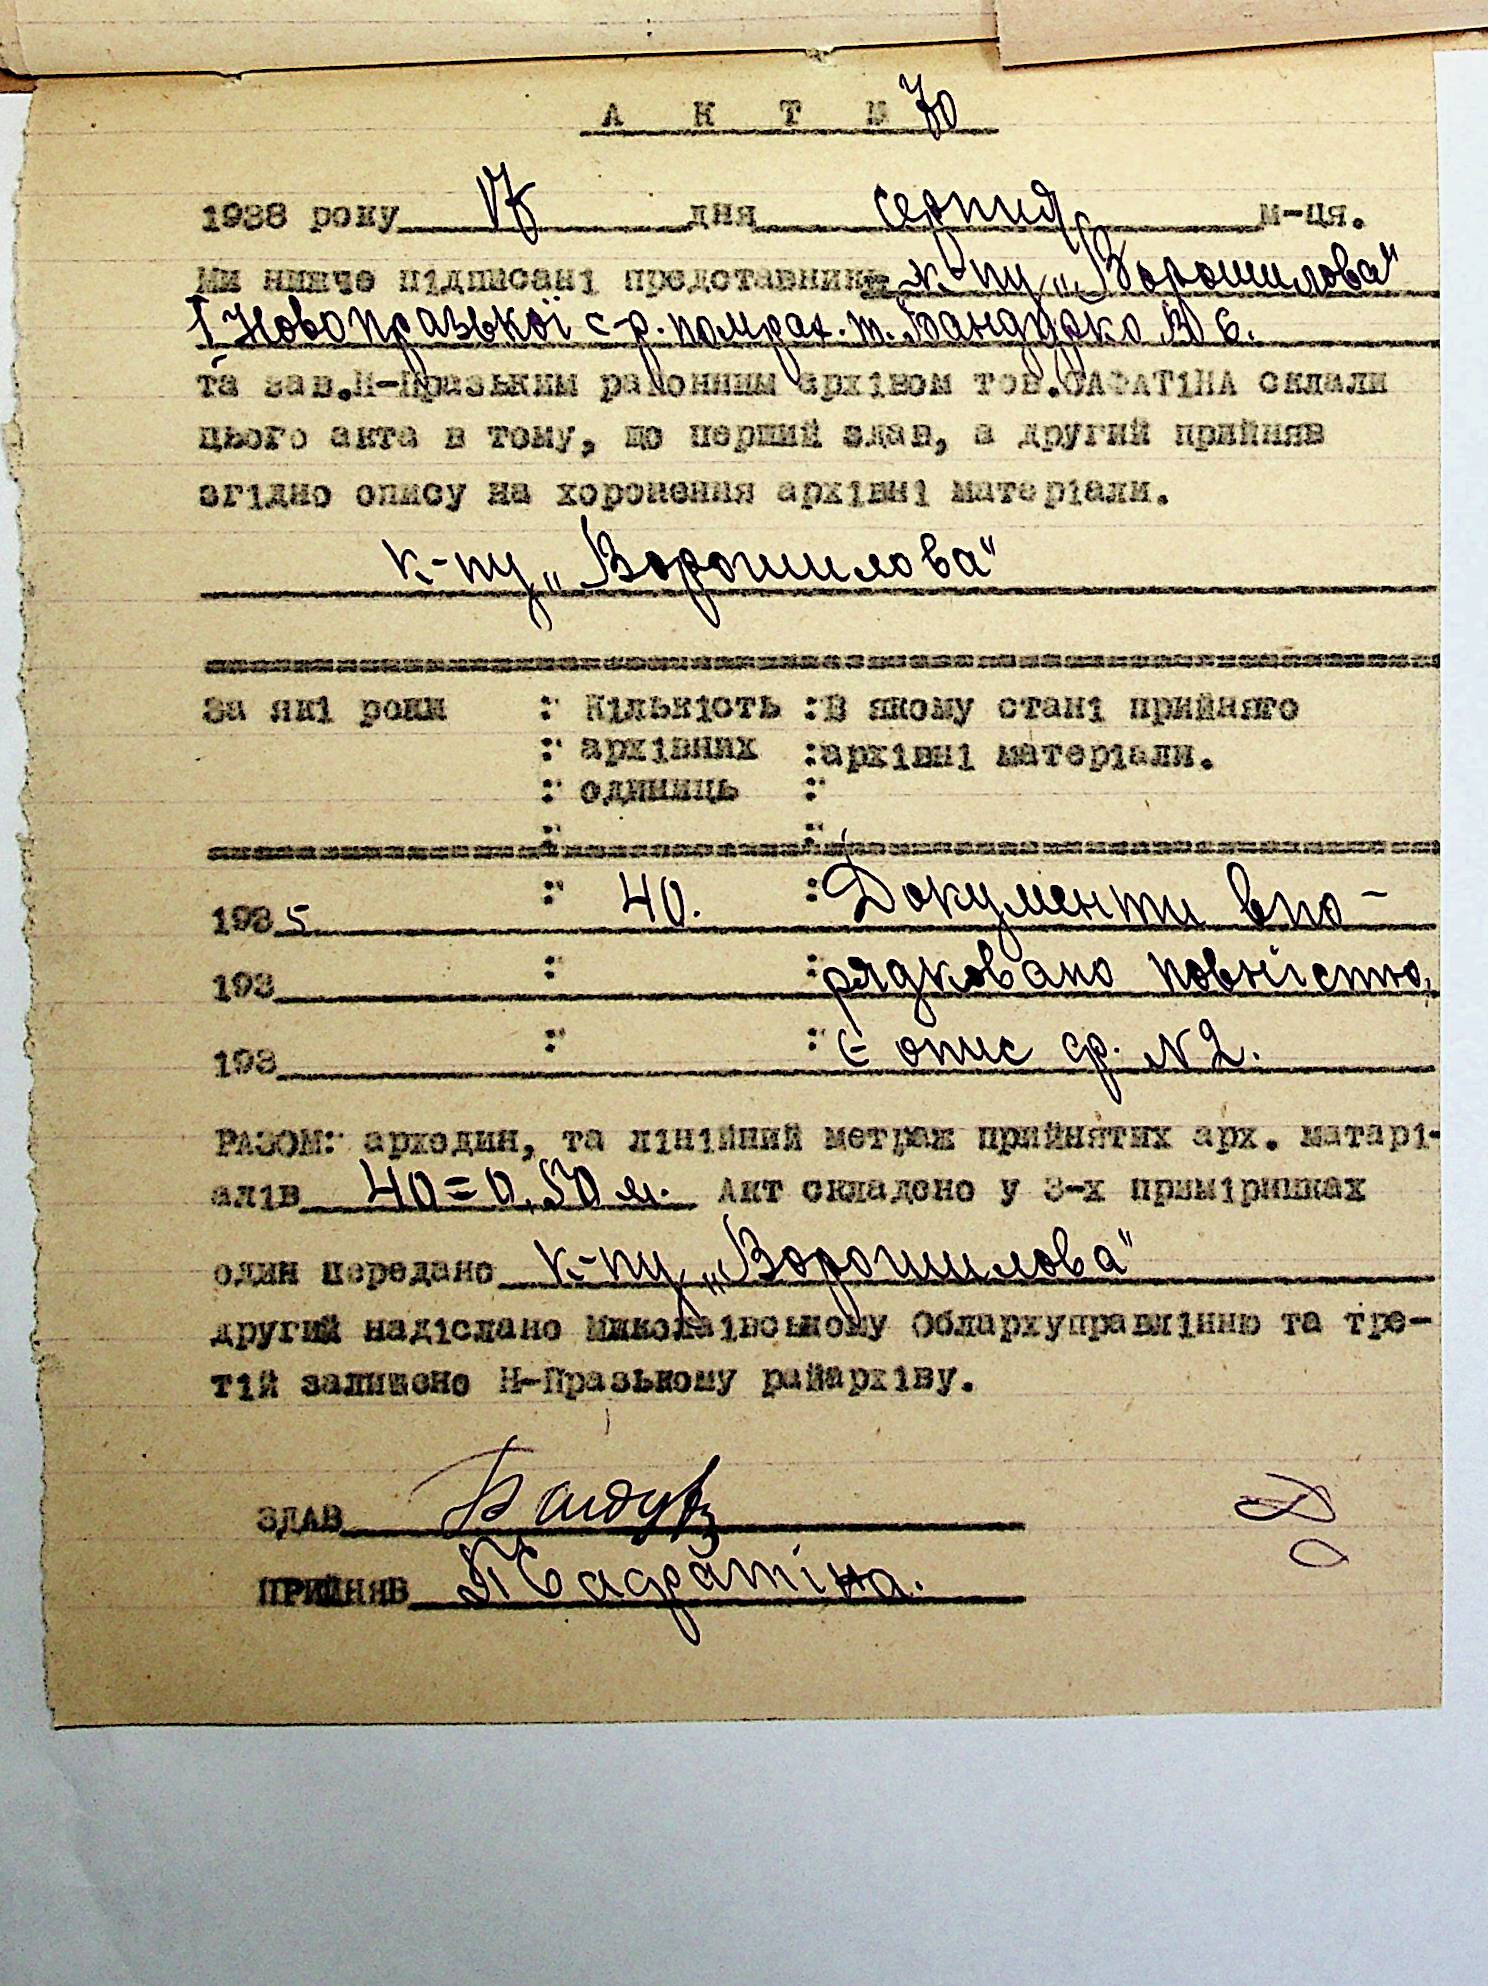 А К Т № 70
1938 року 17 дня серпня м-ця.
Ми нижче підписані представник к-пу „Ворошилова"
І Новопразької с-р. помрах. т. Бандурко
та зав.Н-Празьким районним архівом тов.САФАТІНА склали
цього акта в тому, що перший здав, а другий прийняв
згідно опису на хоронення архівні матеріали.
к-пу „Ворошилова"
За які роки : Кількість : В якому стані прийнято
: архівних : архівні матеріали.
: одиниць :
: :
1935 : 40. : Документи впо-
193 : : рядковано повністю,
193 : : Є опис ф. №2.
РАЗОМ: арходин, та лінійний метраж прийнятих арх. матарі-
алів 40=0,50 м. Акт складено у 3-х примірниках
один передано к-пу „Ворошилова"
другий надіслано Миколаївському Облархуправлінню та тре-
тій залишено Н-Празькому райархіву.
ЗДАВ Бандур
ПРИЙНЯВ Сафатіна.